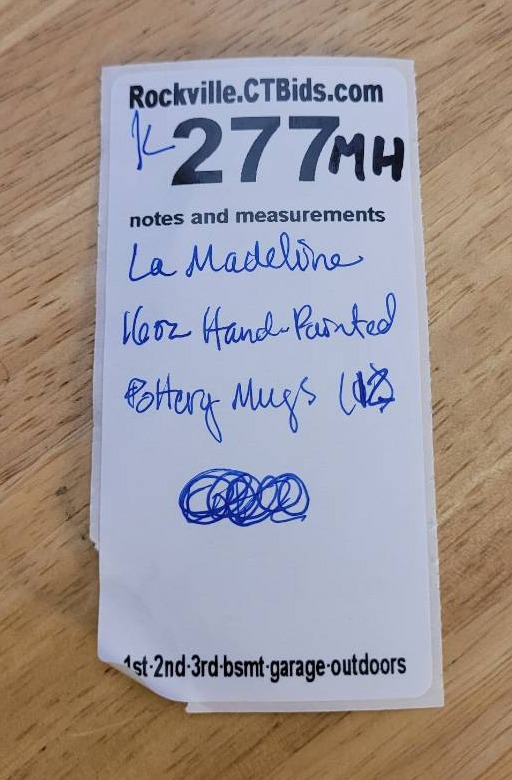 Rockville.CTBids.com
K 277MH
notes and measurements
La Madeline
16oz Hand-Painted
Pottery Mugs (12)
1st·2nd·3rd·bsmt·garage·outdoors